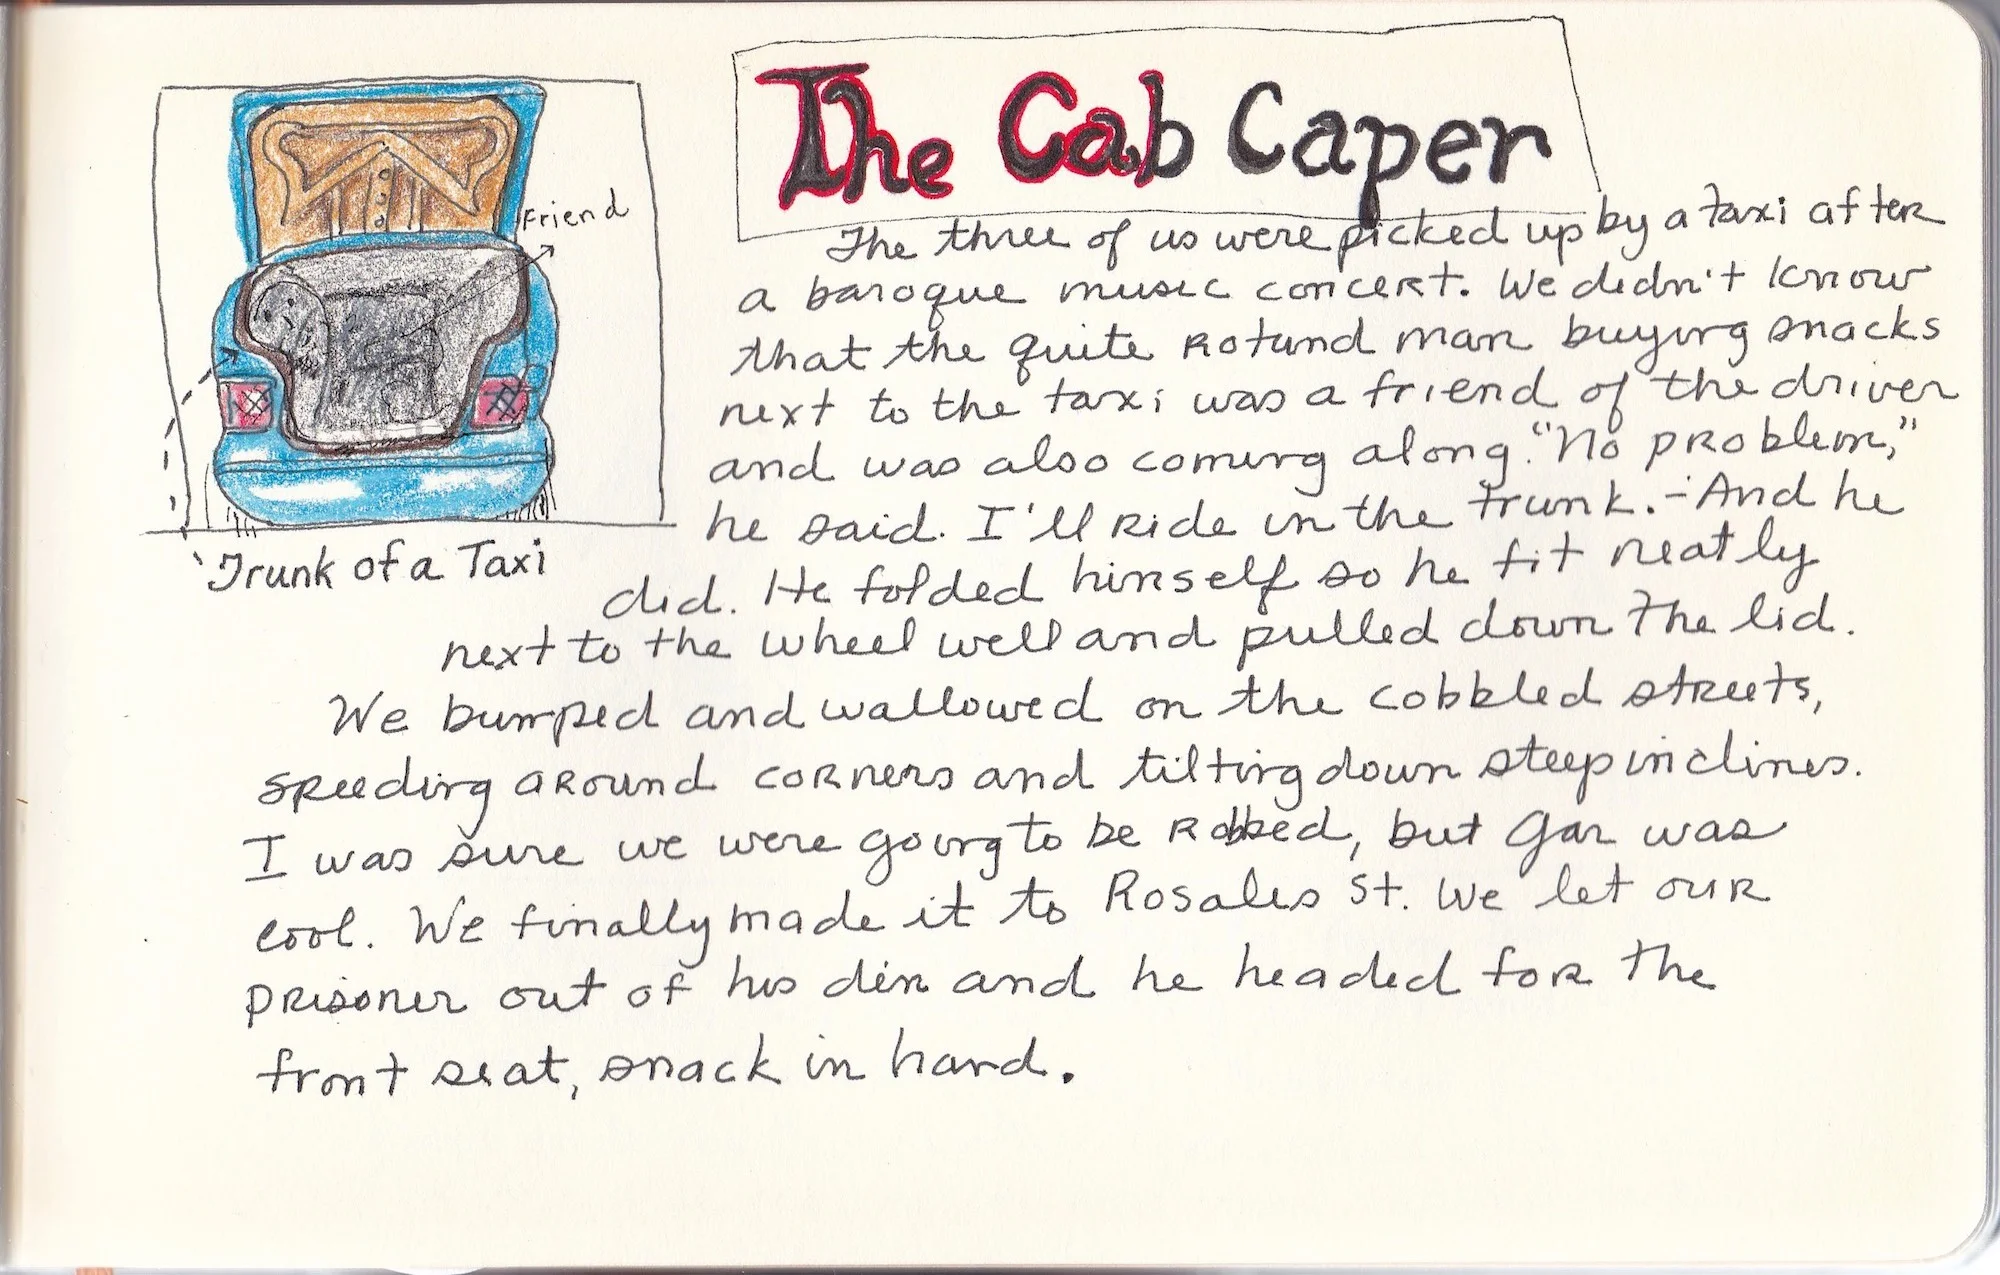 The Cab Caper
Friend
Trunk of a Taxi
The three of us were picked up by a taxi after
a baroque music concert. We didn't know
that the quite rotund man buying snacks
next to the taxi was a friend of the driver
and was also coming along. "No problem,"
he said. I'll ride in the trunk. - And he
did. He folded himself so he fit neatly
next to the wheel well and pulled down the lid.
We bumped and wallowed on the cobbled streets,
speeding around corners and tilting down steep inclines.
I was sure we were going to be robbed, but Gar was
cool. We finally made it to Rosales St. We let our
prisoner out of his den and he headed for the
front seat, snack in hand.